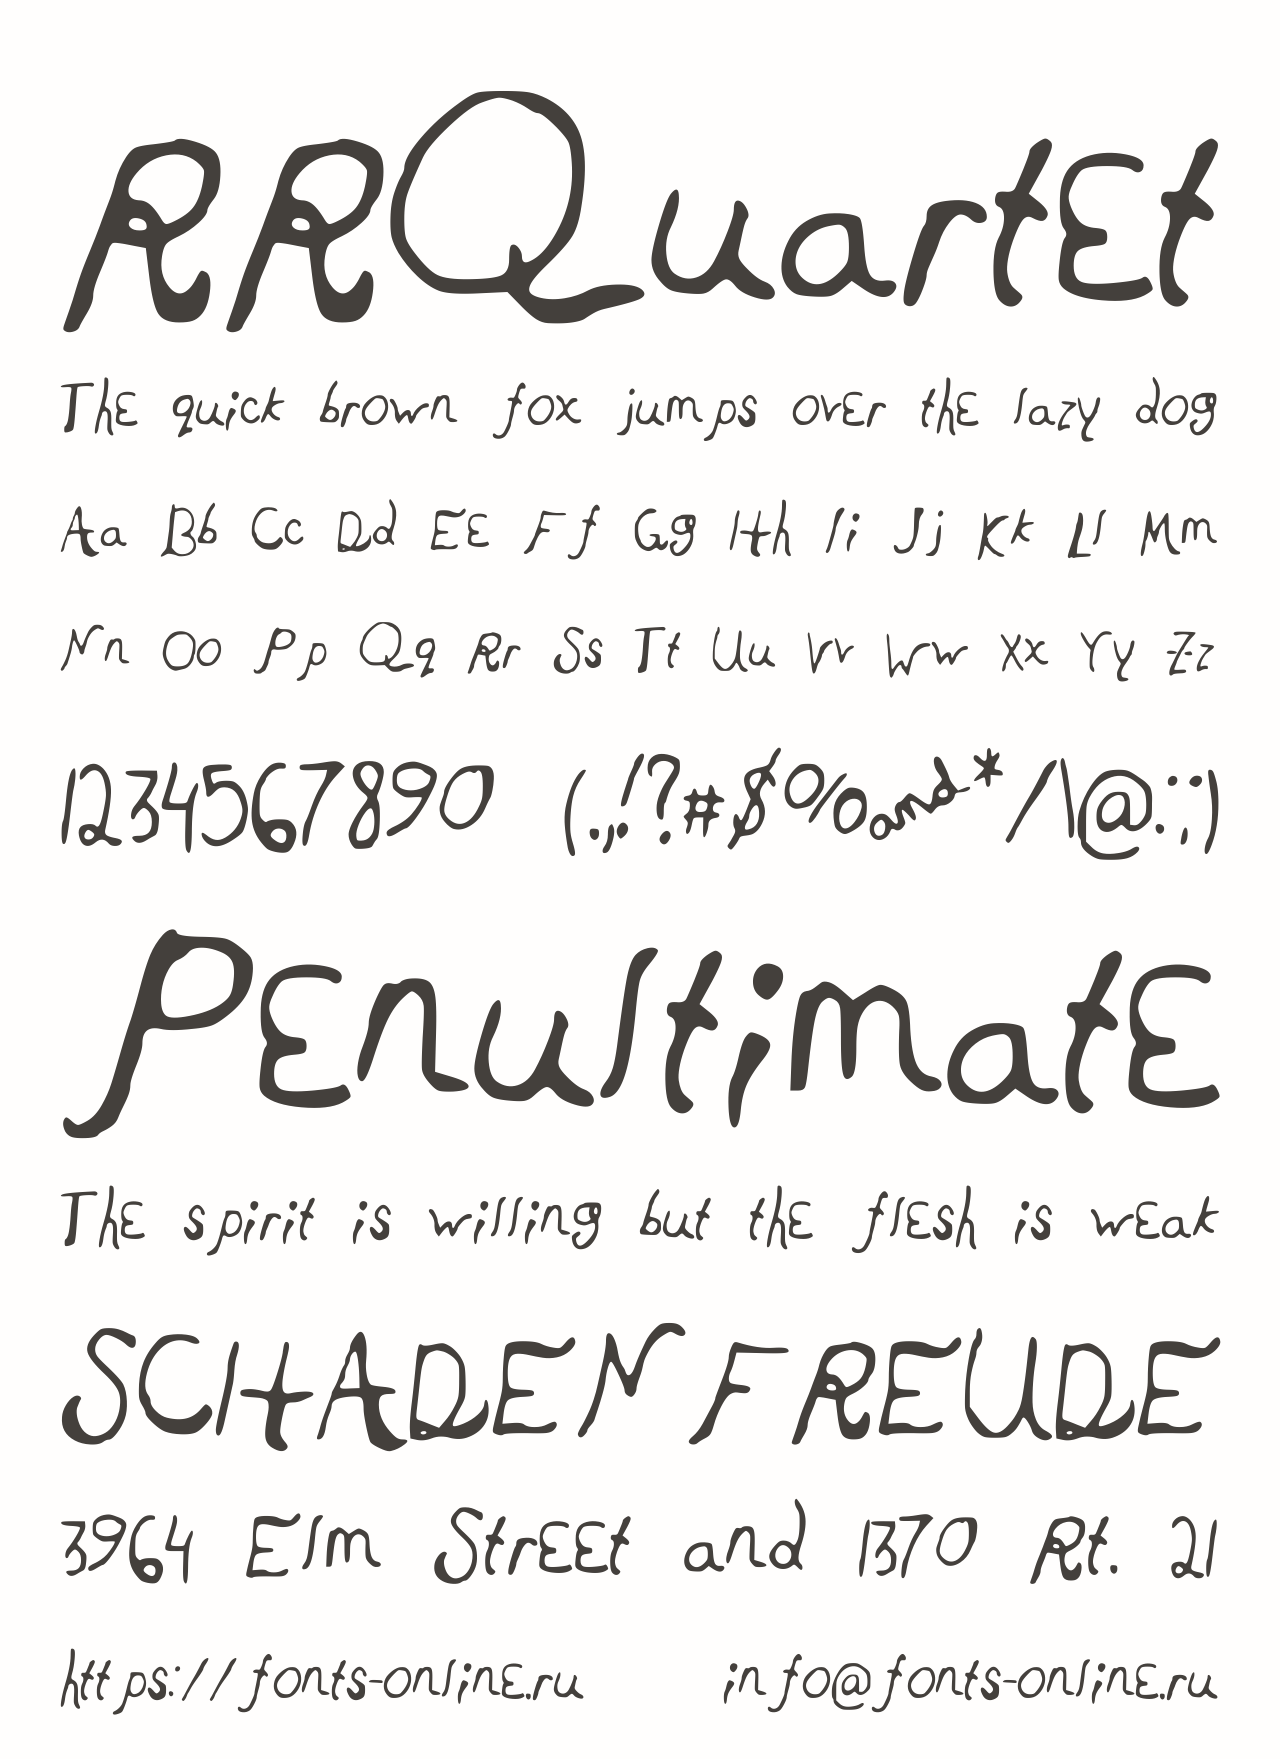 RRQuartet
The quick brown fox jumps over the lazy dog
Aa Bb Cc Dd Ee Ff Gg Hh Ii Jj Kk Ll Mm
Nn Oo Pp Qq Rr Ss Tt Uu Vv Ww Xx Yy Zz
1234567890 (.,!?#$%and*/\@:;)
Penultimate
The spirit is willing but the flesh is weak
SCHADENFREUDE
3964 Elm Street and 1370 Rt. 21
https://fonts-online.ru info@fonts-online.ru